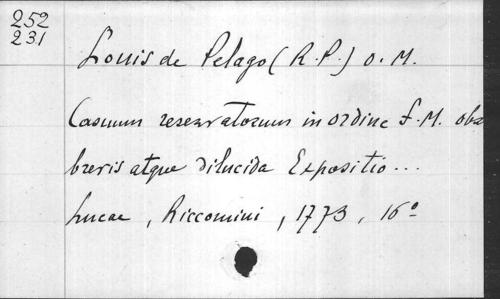 252
231
Louis de Pelago (R.P.) O. M.
Casuum reservatorum in ordine F. M. oba
breris atque dilucida Expositio...
Lucae, Riccomini, 1773, 16º